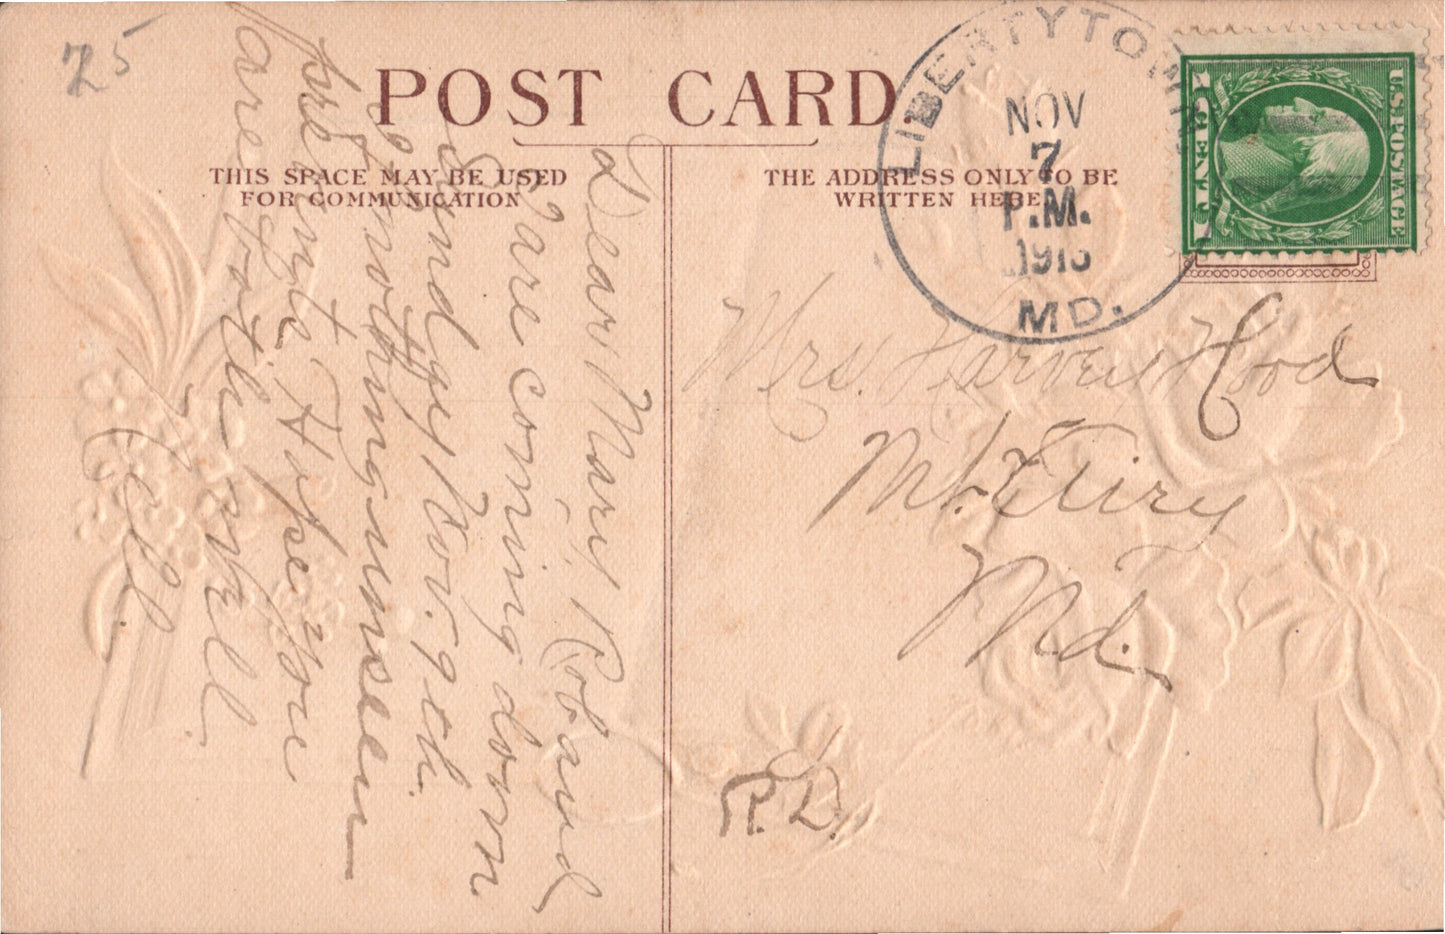 75
POST CARD.
THIS SPACE MAY BE USED
FOR COMMUNICATION
THE ADDRESS ONLY TO BE
WRITTEN HERE
LIBERTYTOWN
NOV
7
P.M.
191
MD.
U.S. POSTAGE
1 CENT 1
Dear Mary, Rob and
are coming down
Sundgy Nov. 9th.
Provoting unseen
are bothe well.
Cell.
Mrs. Harvey Hood
Mt. Airy
Md.
R.D.